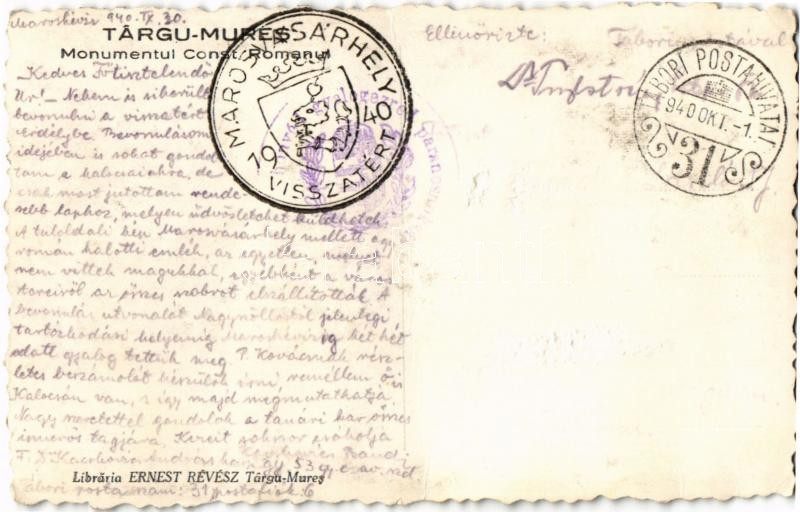 Maroshévíz 940. IX. 30.
TÂRGU-MUREȘ
Monumentul Const. Romanul
Kedves Főtisztelendő
Úr! - Nekem is sikerült
bevonulni a visszatért
Erdélybe. Bevonulásom
idejében is sokat gondol-
tam a kalocsaiakra, de
csak most jutottam rende-
sebb laphoz, melyen üdvözletehet küldhetek.
A túloldali kép Marosvásárhely mellett egy
román halotti emlék, az egyetlen, melyet
nem vittek magukkal, egyébként a város
tereiről az összes szobrot elszállították. A
bevonulás útvonalát Nagy jelenlegi
tartózkodási helyemig Maroshévízig két hét
alatt gyalog tettük meg. P. Kovácsnak rész-
letes beszámolót készülök írni remélem ő is
Kalocsán van, s így majd megmutathatja.
Nagy szeretettel gondolok a tanári kar összes
ismerős tagjára. Kezeit sokszor csókolja
F. Dr 53 gy.
Librăria ERNEST RÉVÉSZ Târgu-Mureș
Tábori posta szám: 31 postafiók: 6
MAROSVÁSÁRHELY
1940
VISSZATÉRT
Ellenőrizte:
Dr
TÁBORI POSTAHIVATAL
940 OKT. -1.
31